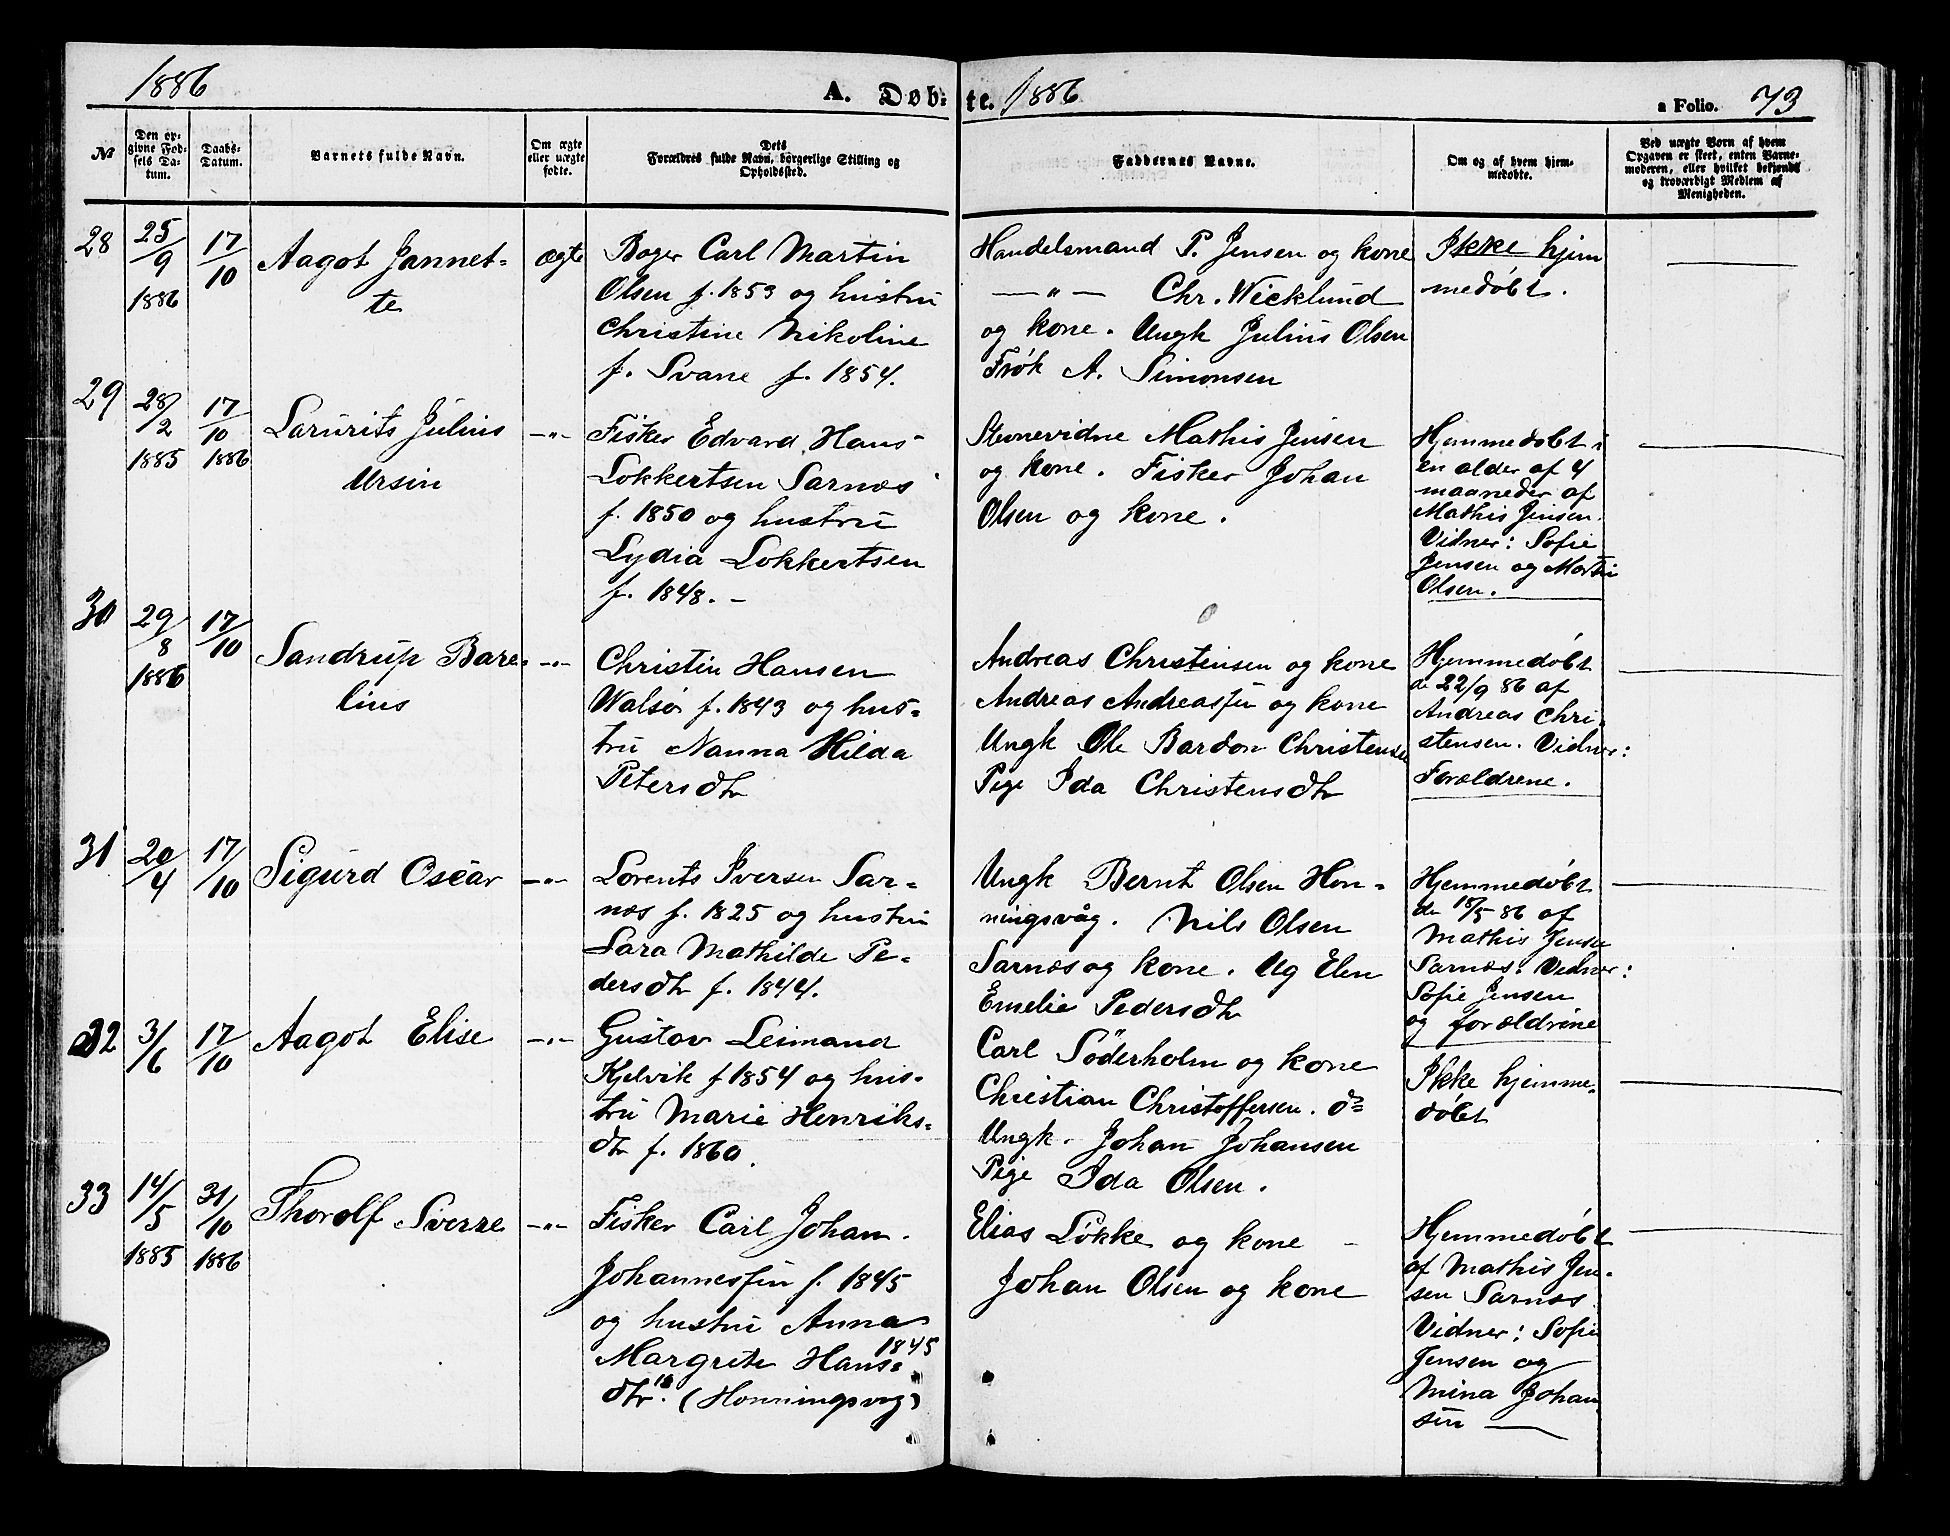 1886
A. Døb-
te. 1886
a Folio. 73
№
Den op-
givne Fød-
sels Da-
tum.
Daabs-
Datum.
Barnets fulde Navn.
Om ægte
eller uægte
fødte.
Dets
Forældres fulde Navn, borgerlige Stilling og
Opholdssted.
Faddernes Navne.
Om og af hvem hjem-
medøbte.
Ved uægte Børn af hvem
Opgaven er skeet, enten Barne-
moderen, eller hvilket bekjendt
og troværdigt Medlem af
Menigheden.
28
25/9
1886
17/10
Aagot Jannet-
te
ægte
Bager Carl Martin
Olsen f. 1853 og hustru
Christine Nikoline
f. Svane f. 1854.
Handelsmand P. Jensen og kone
— " — Chr. Wicklund
og kone. Ungk Julius Olsen
Frøk A. Simonsen
Ikke hjem
medøbt.
29
28/2
1885
17/10
1886
Laurits Julius
Ursin
—"—
Fisker Edvard Hans
Lokkertsen Sarnæs
f. 1850 og hustru
Lydia Lokkertsen
f. 1848. –
Stevnevidne Mathis Jensen
og kone. Fisker Johan
Olsen og kone.
Hjemmedøbt i
en alder af 4
maaneder af
Mathis Jensen.
Vidner: Sofie
Jensen og
Olsen.
30
29/8
1886
17/10
Sandrup Bare-
lius
—"—
Christin Hansen
Walsø f. 1843 og hus-
tru Nanna Hilda
Petersdtr
Andreas Christensen og kone
Andreas Andreassen og kone
Ungk Ole Bardon Christensen
Pige Ida Christensdtr
Hjemmedøbt
de 22/9 86 af
Andreas Chri-
stensen. Vidner:
Forældrene.
31
20/4
17/10
Sigurd Oscar
—"—
Lorents Iversen Sar-
næs f. 1825 og hustru
Sara Mathilde Pe-
dersdtr f. 1844.
Ungk Bernt Olsen Hon-
ningsvåg. Nils Olsen
Sarnæs og kone. Ug Elen
Emelie Pedersdtr
Hjemmedøbt
de 18/5 86 af
Mathis Jensen
Sarnæs. Vidner:
Sofie Jensen
og forældrene
32
3/6
17/10
Aagot Elise
—"—
Gustav Leimand
Kjelvik f 1854 og hus-
tru Marie Henriks-
dtr f. 1860.
Carl Söderholm og kone
Christian Christoffersen. do
Ungk. Johan Johansen
Pige Ida Olsen.
Ikke hjemme-
døbt
33
14/5
1885
31/10
1886
Thorolf Sverre
—"—
Fisker Carl Johan
Johannessen f. 1845
og hustru Anna
Margrete Hans-
1845
dtr. (Honningsvog)
Elias Løkke og kone –
Johan Olsen og kone
Hjemmedøbt
af Mathis Jen-
sen Sarnæs
Vidner: Sofie
Jensen og
Mina Johan
sen —